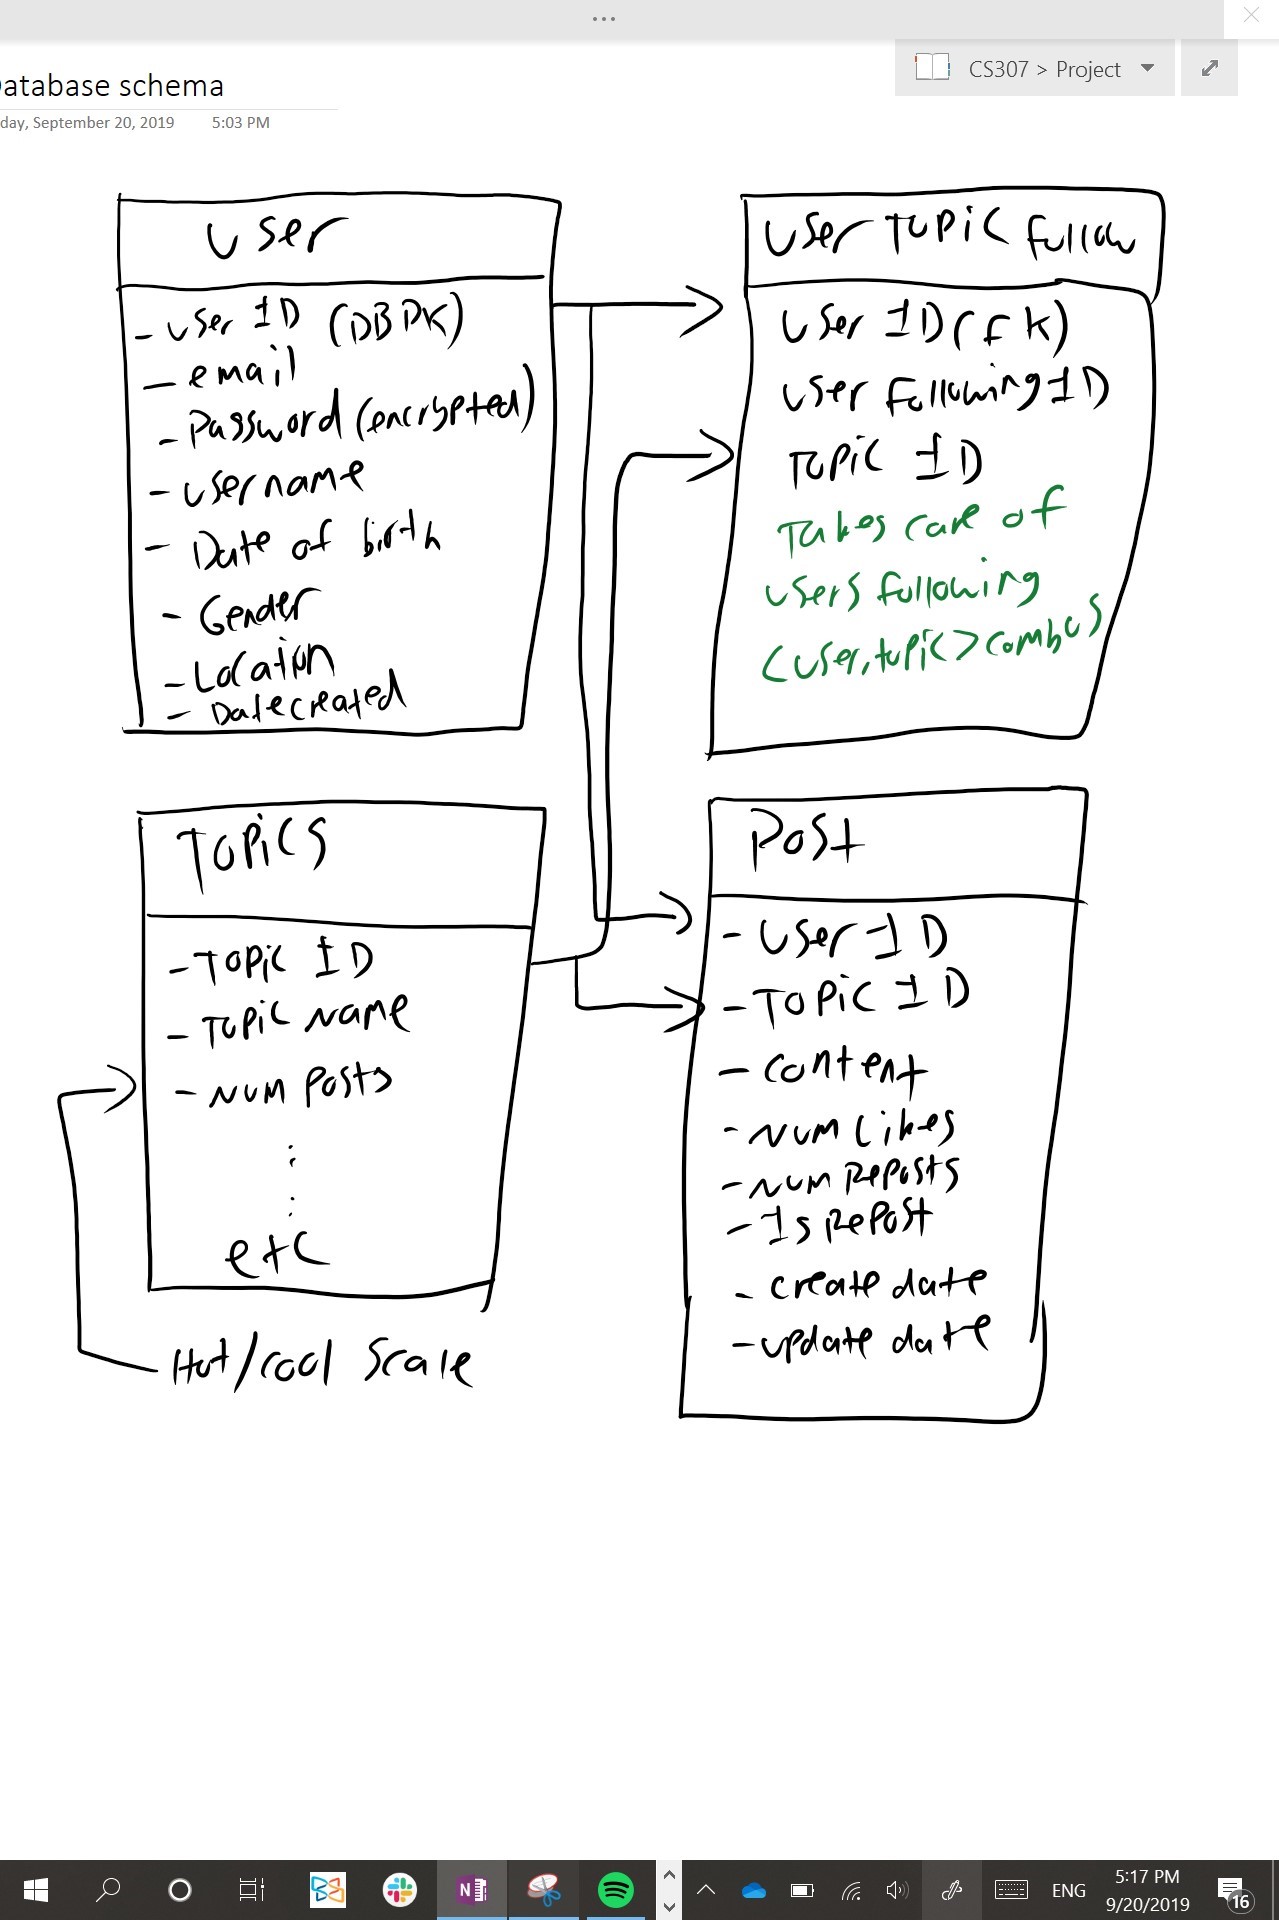 atabase schema
day, September 20, 2019 5:03 PM
CS307 > Project
User
- User ID (DB PK)
- email
- Password (encrypted)
- Username
- Date of birth
- Gender
- Location
- Date created
User Topic Follow
User ID (FK)
User Following ID
Topic ID
Takes care of
users following
<user, topic> combos
Topics
- Topic ID
- Topic Name
- Num Posts
etc
Hot/cool Scale
Post
- User ID
- Topic ID
- content
- Num Likes
- Num Reposts
- Is Repost
- create date
- update date
N
ENG
5:17 PM
9/20/2019
16